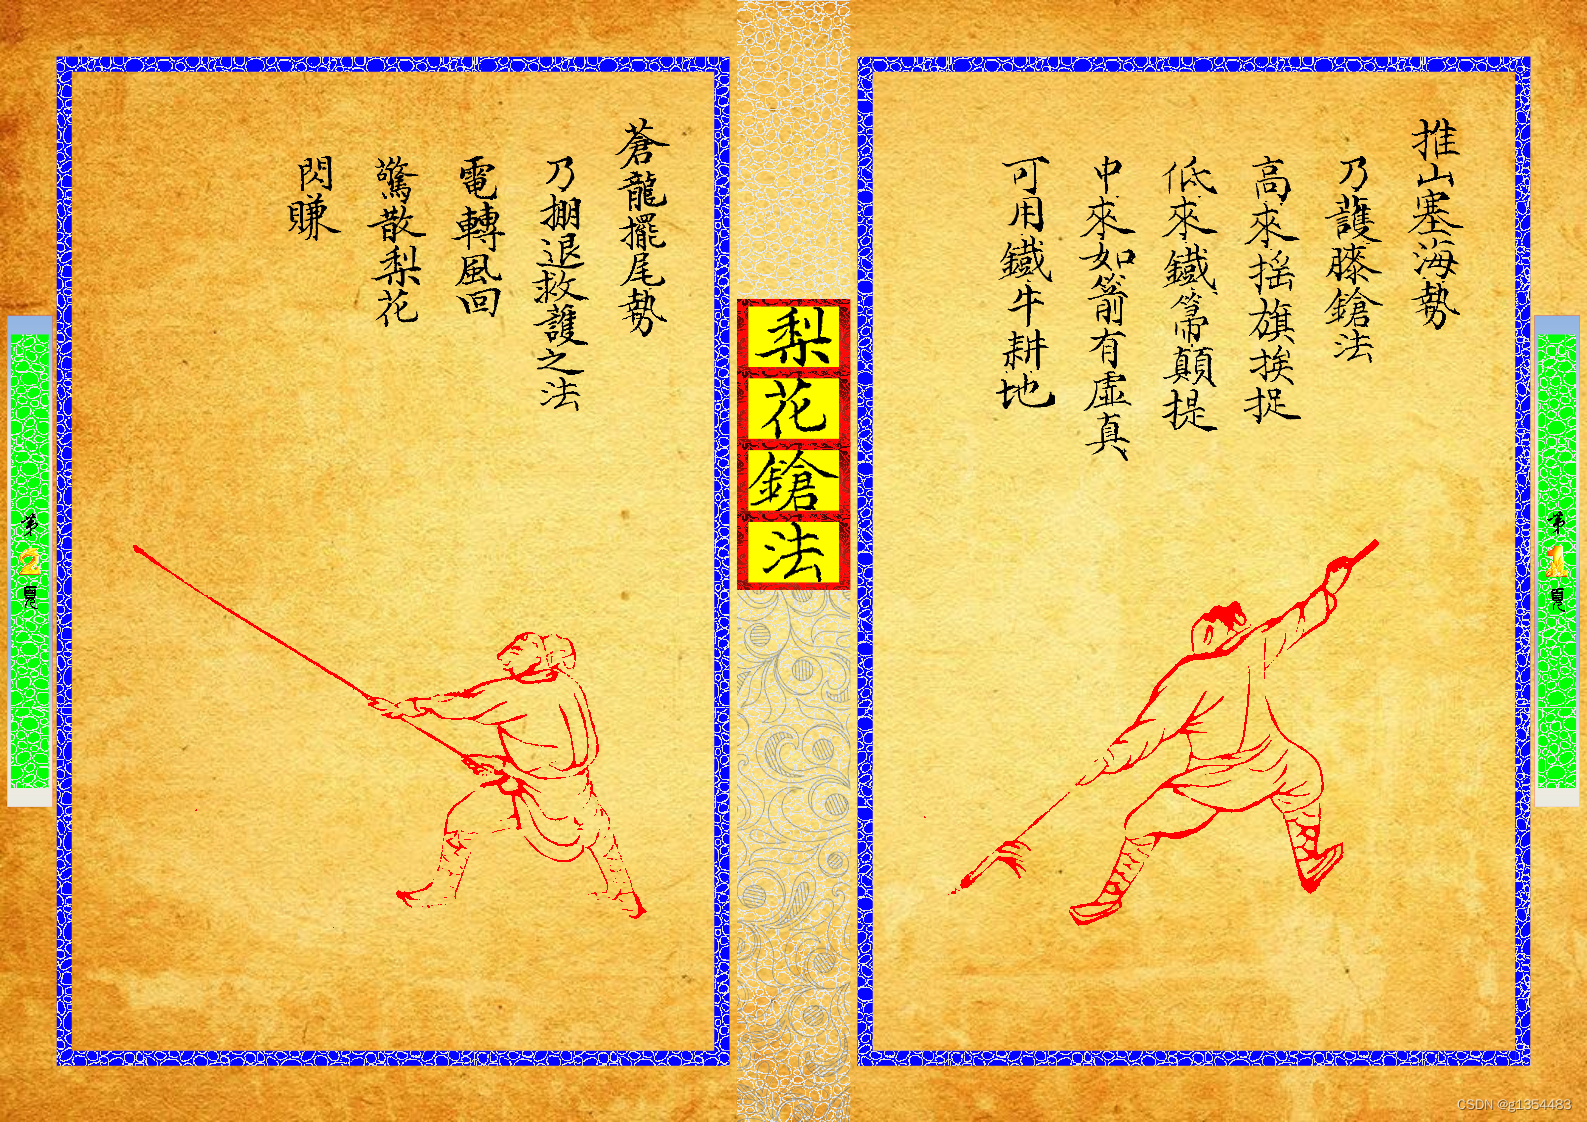 第1頁
推山塞海勢
乃䕶膝鎗法
高來搖旗挨捉
低來鐵箒顛提
中來如箭有虛真
可用鐵牛耕地
梨花鎗法
蒼龍擺尾勢
乃掤退救護之法
電轉風回
驚散梨花
閃賺
第2頁
CSDN @g1354483